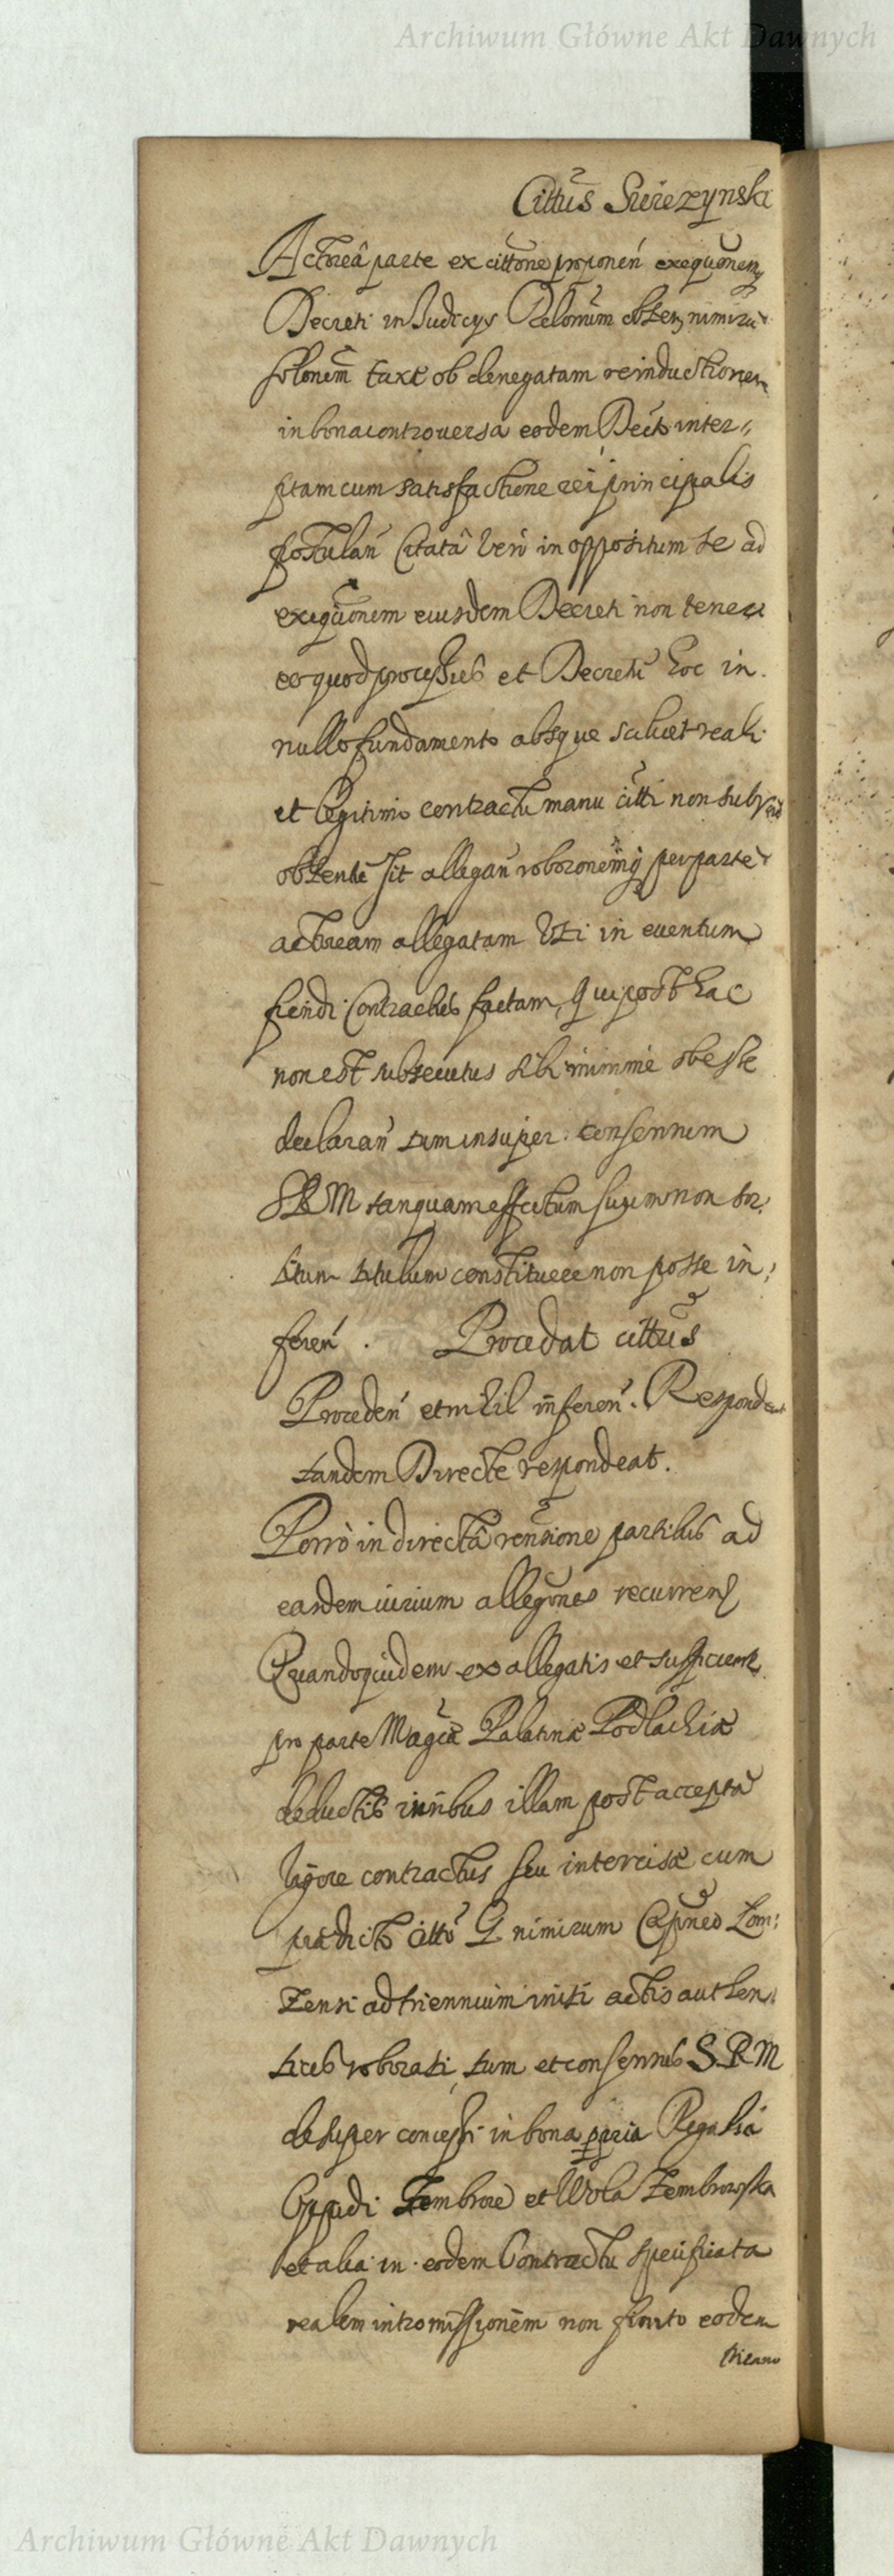 Archiwum Główne Akt Dawnych
Cittus
Actorea parte ex cittone proponen exequonem
Decreti in Judicys obten nimiru
solonem taxae ob denegatam reinductionem
in bona controversa eodem Decto inter
ptam cum satisfactione rei principalis
postulan Citata vero in oppositum se ad
exequonem eiusdem Decreti non teneri
eo quod processus et Decretu hoc in
nullo fundamento absque scilicet reali
et legitimo contractu manu citti non
obtentu sit allegan roboronemq per parte
actoream allegatam uti in eventum
fiendi Contractus factam, qui post hac
non est subsecutus sibi minime obesse
declaran tum insuper consensum
SRM tanquam effectum suum non sor
titum titulum constituere non posse in
feren . Procedat cittus
Proceden et nihil inferen. Respondeat
tandem Directe respondeat.
Porro in directa rensione partibus ad
easdem iurium allegones recurren
Quandoquidem ex allegatis et sufficient
pro parte Magcae Palatinae Podlachiae
deductis iuribus illam post accepta
vigore contractus seu intercisae cum
praedicto citto G nimirum Capneo Lom
zensi ad triennium initi actis authen
ticis roborati, tum et consensus S.R.M
desuper concessi in bona ppria Regalia
Oppidi Zembrow et Wola Zembrowska
et alia in eodem Contractu specificata
realem intromissionem non finito eodem
Archiwum Główne Akt Dawnych